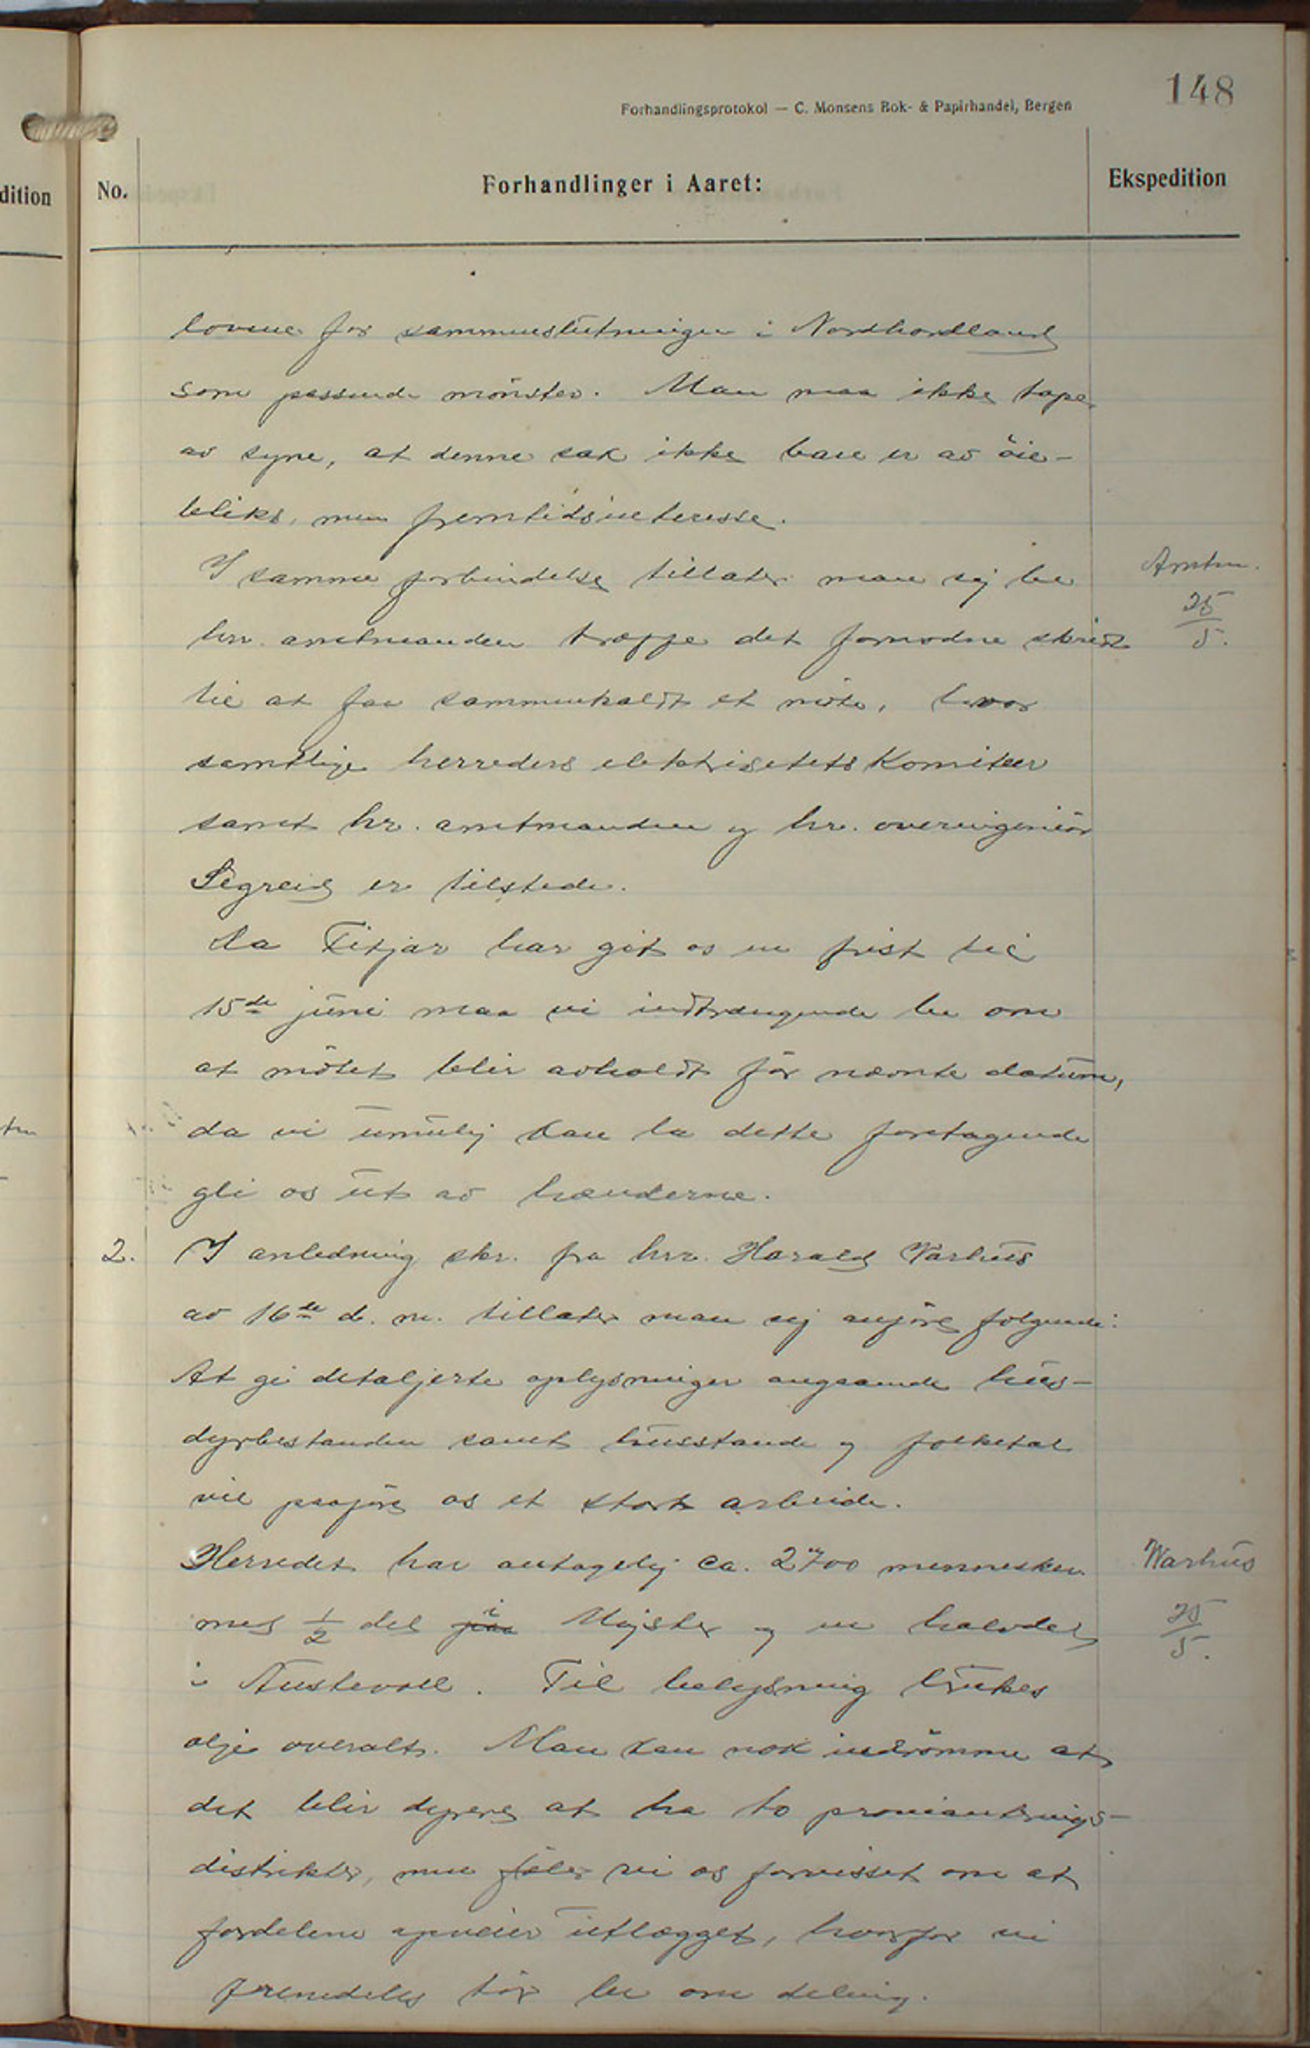 148
Forhandlingsprotokol — C. Monsens Bok- & Papirhandel, Bergen
dition
No.
Forhandlinger i Aaret:
Ekspedition
lovene for sammenslutningen i Nordhordland
som passende mönster. Man maa ikke tape
av syne, at denne sak ikke bare er av öie-
bliks, men fremtidsinteresse.
I samme forbindelse tillater man sig be
Amtm.
25/5.
hr. amtmanden træffe det fornødne skridt
til at faa sammenkaldt et møte, hvor
samtlige herreders elektrisetets komiteer
samt hr. amtmanden og hr. overingeniör
Segreid er tilstede.
Da Fitjar har git os en frist til
15de juni maa vi indtrængende be om
at mötet blir avholdt för nævnte datum,
da vi umulig kan la dette foretagende
gli os ut av hænderne.
2.
I anledning skr. fra hr. Harald Warhus
av 16de d. m. tillater man sig anföre følgende:
At gi detaljerte oplysninger angaaende hus-
dyrbestanden samt husstande og folketal
vil paaföre os et stort arbeide.
Herredet har antagelig ca. 2700 mennesker
Warhus
25/5.
med 1/2 del paa i Møgster og en halvdel
i Austevoll. Til belysning brukes
olje overalt. Man kan nok indrömme at
det blir dyrere at ha to provianterings-
distrikter, men föler vi os forvisset om at
fordelene opveier utlægget, hvorfor vi
fremdeles tör be om deling.